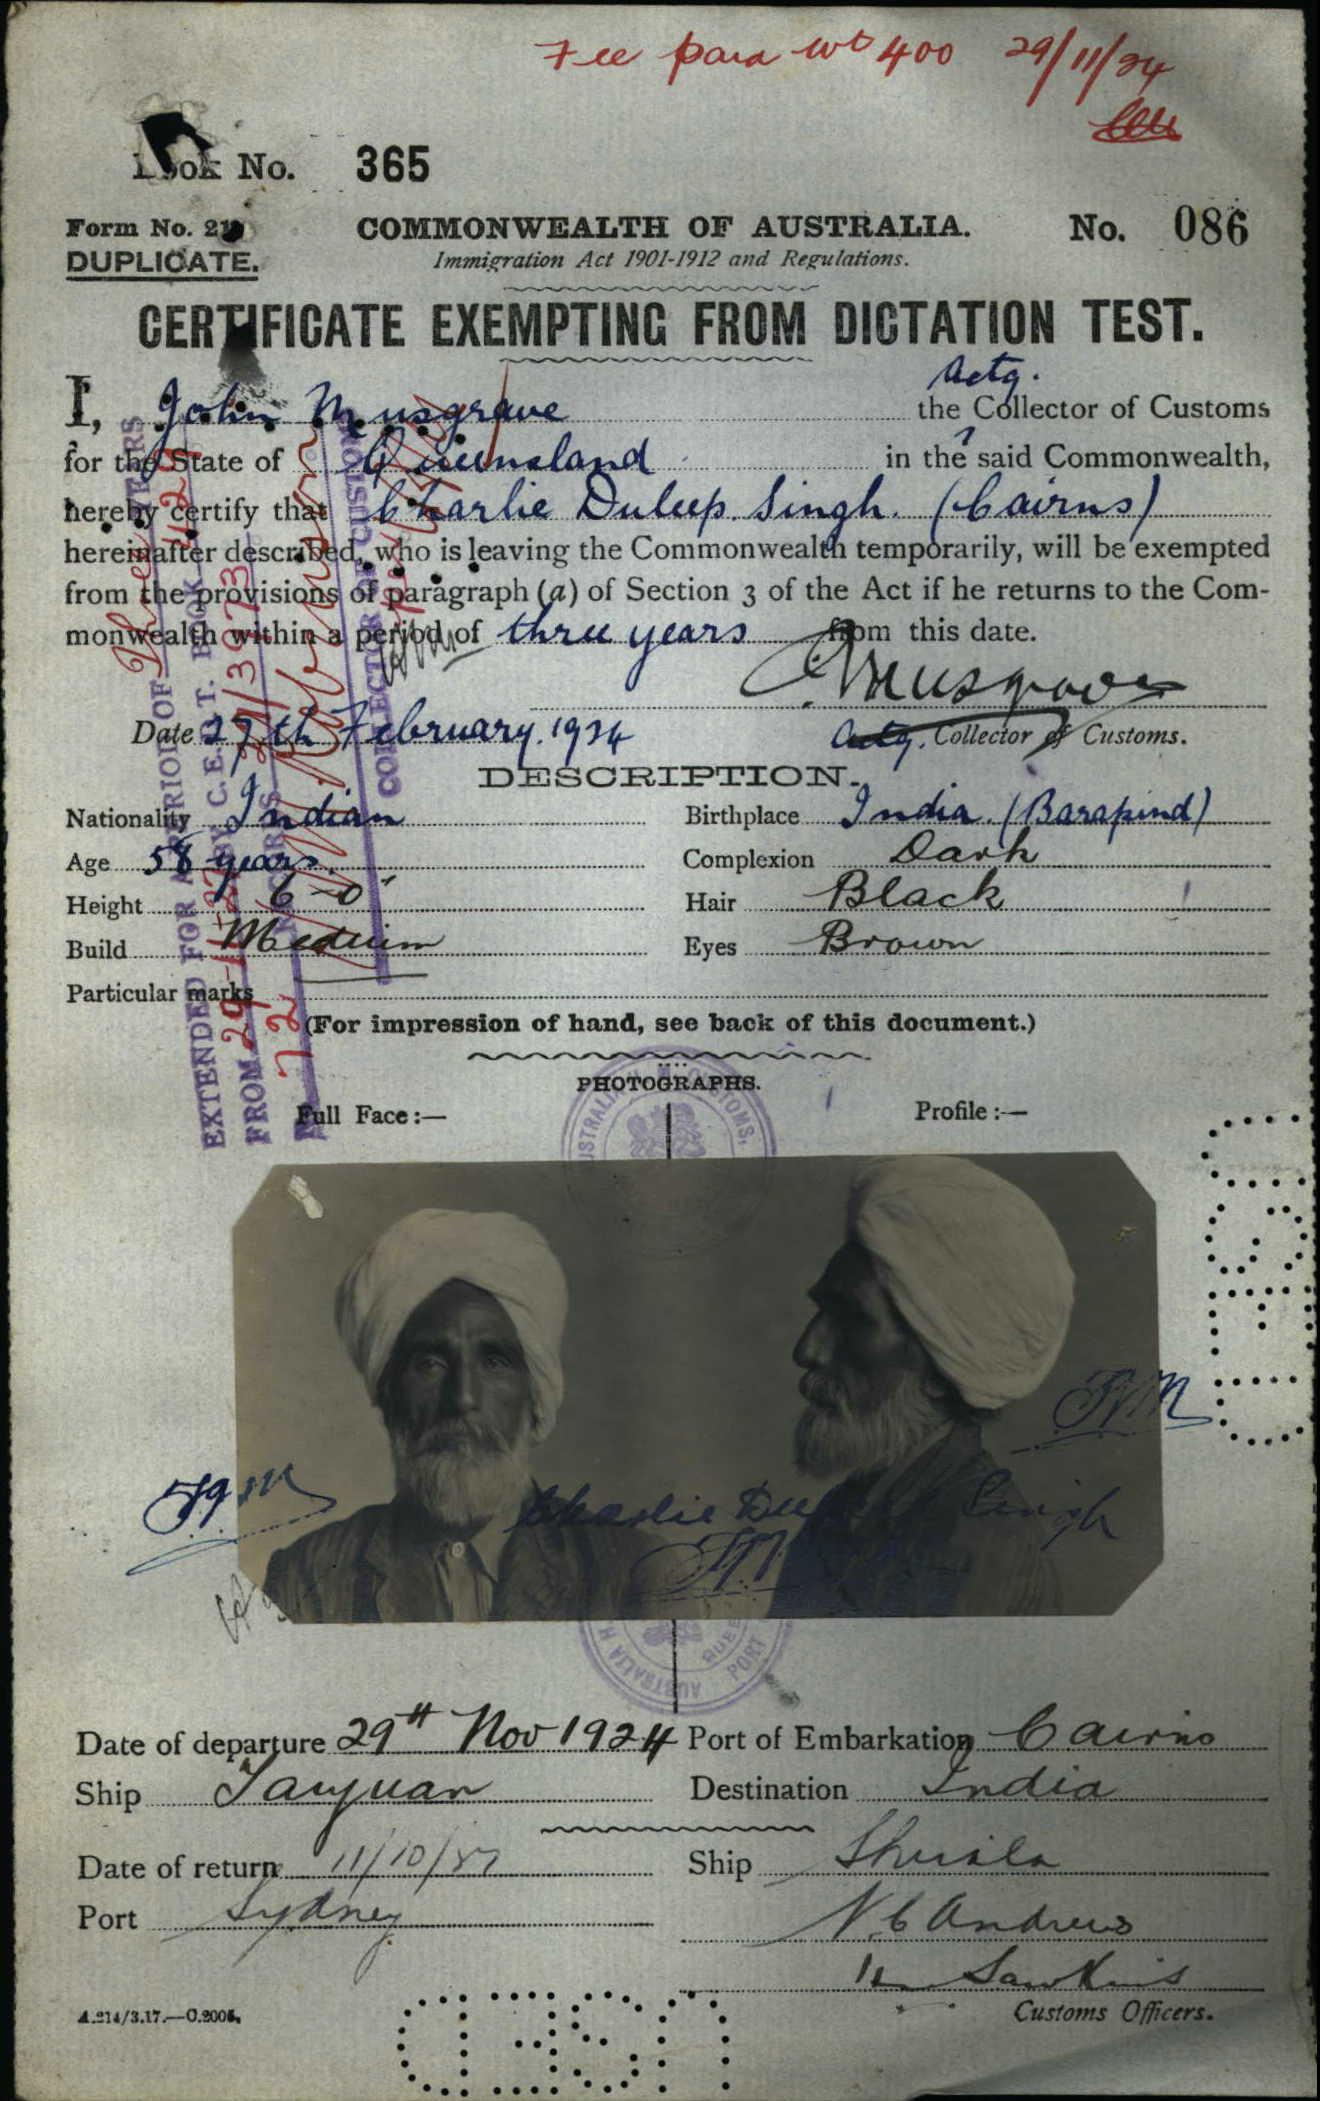 Fee paid 400 29/11/24
Book No. 365
Form No. 21
COMMONWEALTH OF AUSTRALIA.
No. 086
DUPLICATE.
Immigration Act 1901-1912 and Regulations.
CERTIFICATE EXEMPTING FROM DICTATION TEST.
Actg.
I, John Musgrave the Collector of Customs
for the State of Queensland in the said Commonwealth,
hereby certify that Charlie Duleep Singh. (Cairns)
hereinafter described, who is leaving the Commonwealth temporarily, will be exempted
from the provisions of paragraph (a) of Section 3 of the Act if he returns to the Com-
monwealth within a period of three years from this date.
Musgrave
Date 27th February. 1924
Actg. Collector of Customs.
DESCRIPTION.
Nationality Indian
Birthplace India. (Barapind)
Age 58 years.
Complexion Dark
Height 6-0"
Hair Black
Build Medium
Eyes Brown
Particular marks
(For impression of hand, see back of this document.)
EXTENDED FOR A PERIOD OF Three YEARS
FROM 29-11-27 BY C.E.D.T. BOOK 429
COLLECTOR OF CUSTOMS
PHOTOGRAPHS.
Full Face:—
Profile:—
Charlie Duleep Singh
Date of departure 29th Nov 1924
Port of Embarkation Cairns
Ship Taiyuan
Destination India
Date of return 11/10/
Ship Shirala
Port Sydney
N. C Andrews
Hawkins
A.214/3.17.—C.2005.
Customs Officers.